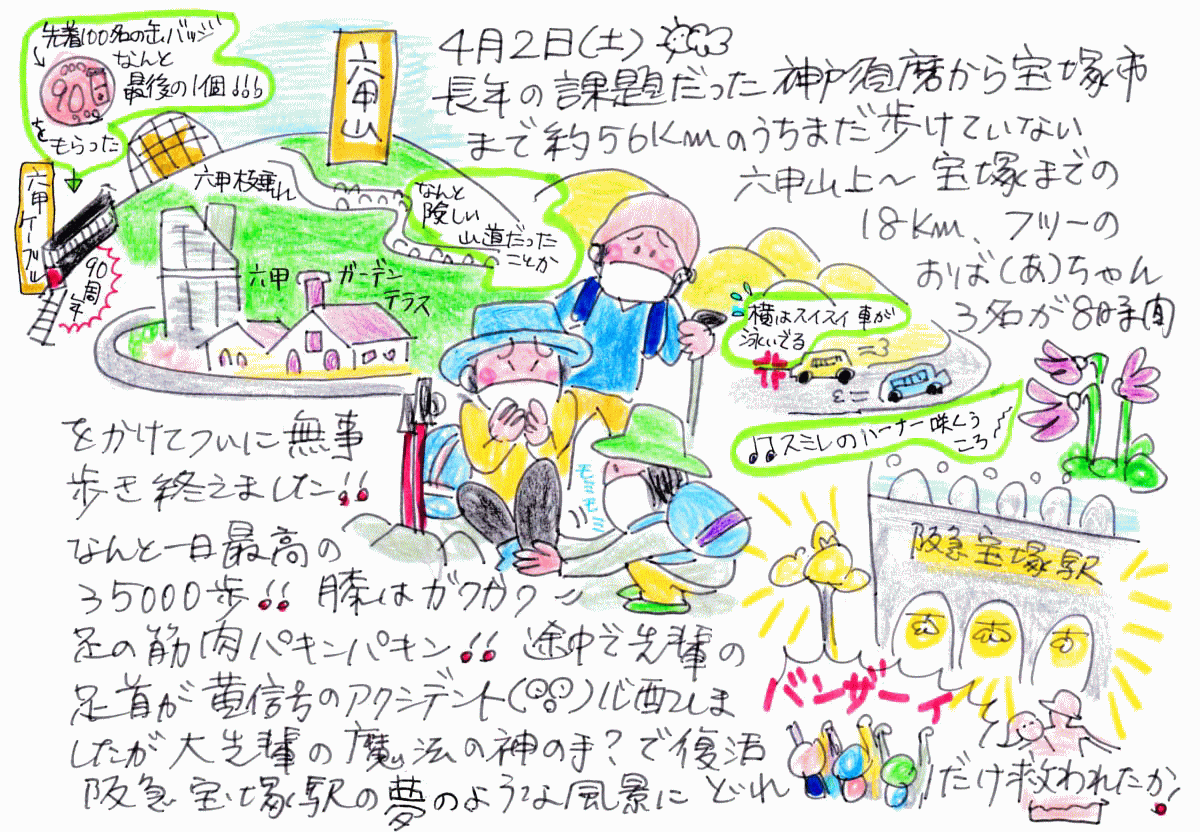 4月2日(土)
長年の課題だった神戸須磨から宝塚市
まで約56Kmのうちまだ歩けていない
六甲山上～宝塚までの
18Km、フツーの
おば(あ)ちゃん
3名が8時間
をかけてついに無事
歩き終えました!!
なんと一日最高の
35000歩!! 膝はガクガク
足の筋肉パキンパキン!! 途中で先輩の
足首が黄信号のアクシデント( )心配しま
したが大先輩の魔法の神の手?で復活
阪急宝塚駅の夢のような風景に どれ
だけ救われたか!
先着100名の缶バッジ
なんと
最後の1個!!!
90
をもらった
六甲ケーブル
90周年
六甲枝垂れ
六甲山
六甲ガーデン
テラス
なんと
険しい
山道だった
ことか
横はスイスイ車が
泳いでる
スミレのハーナー咲くう
ころ
モミモミ
阪急宝塚駅
バンザーイ